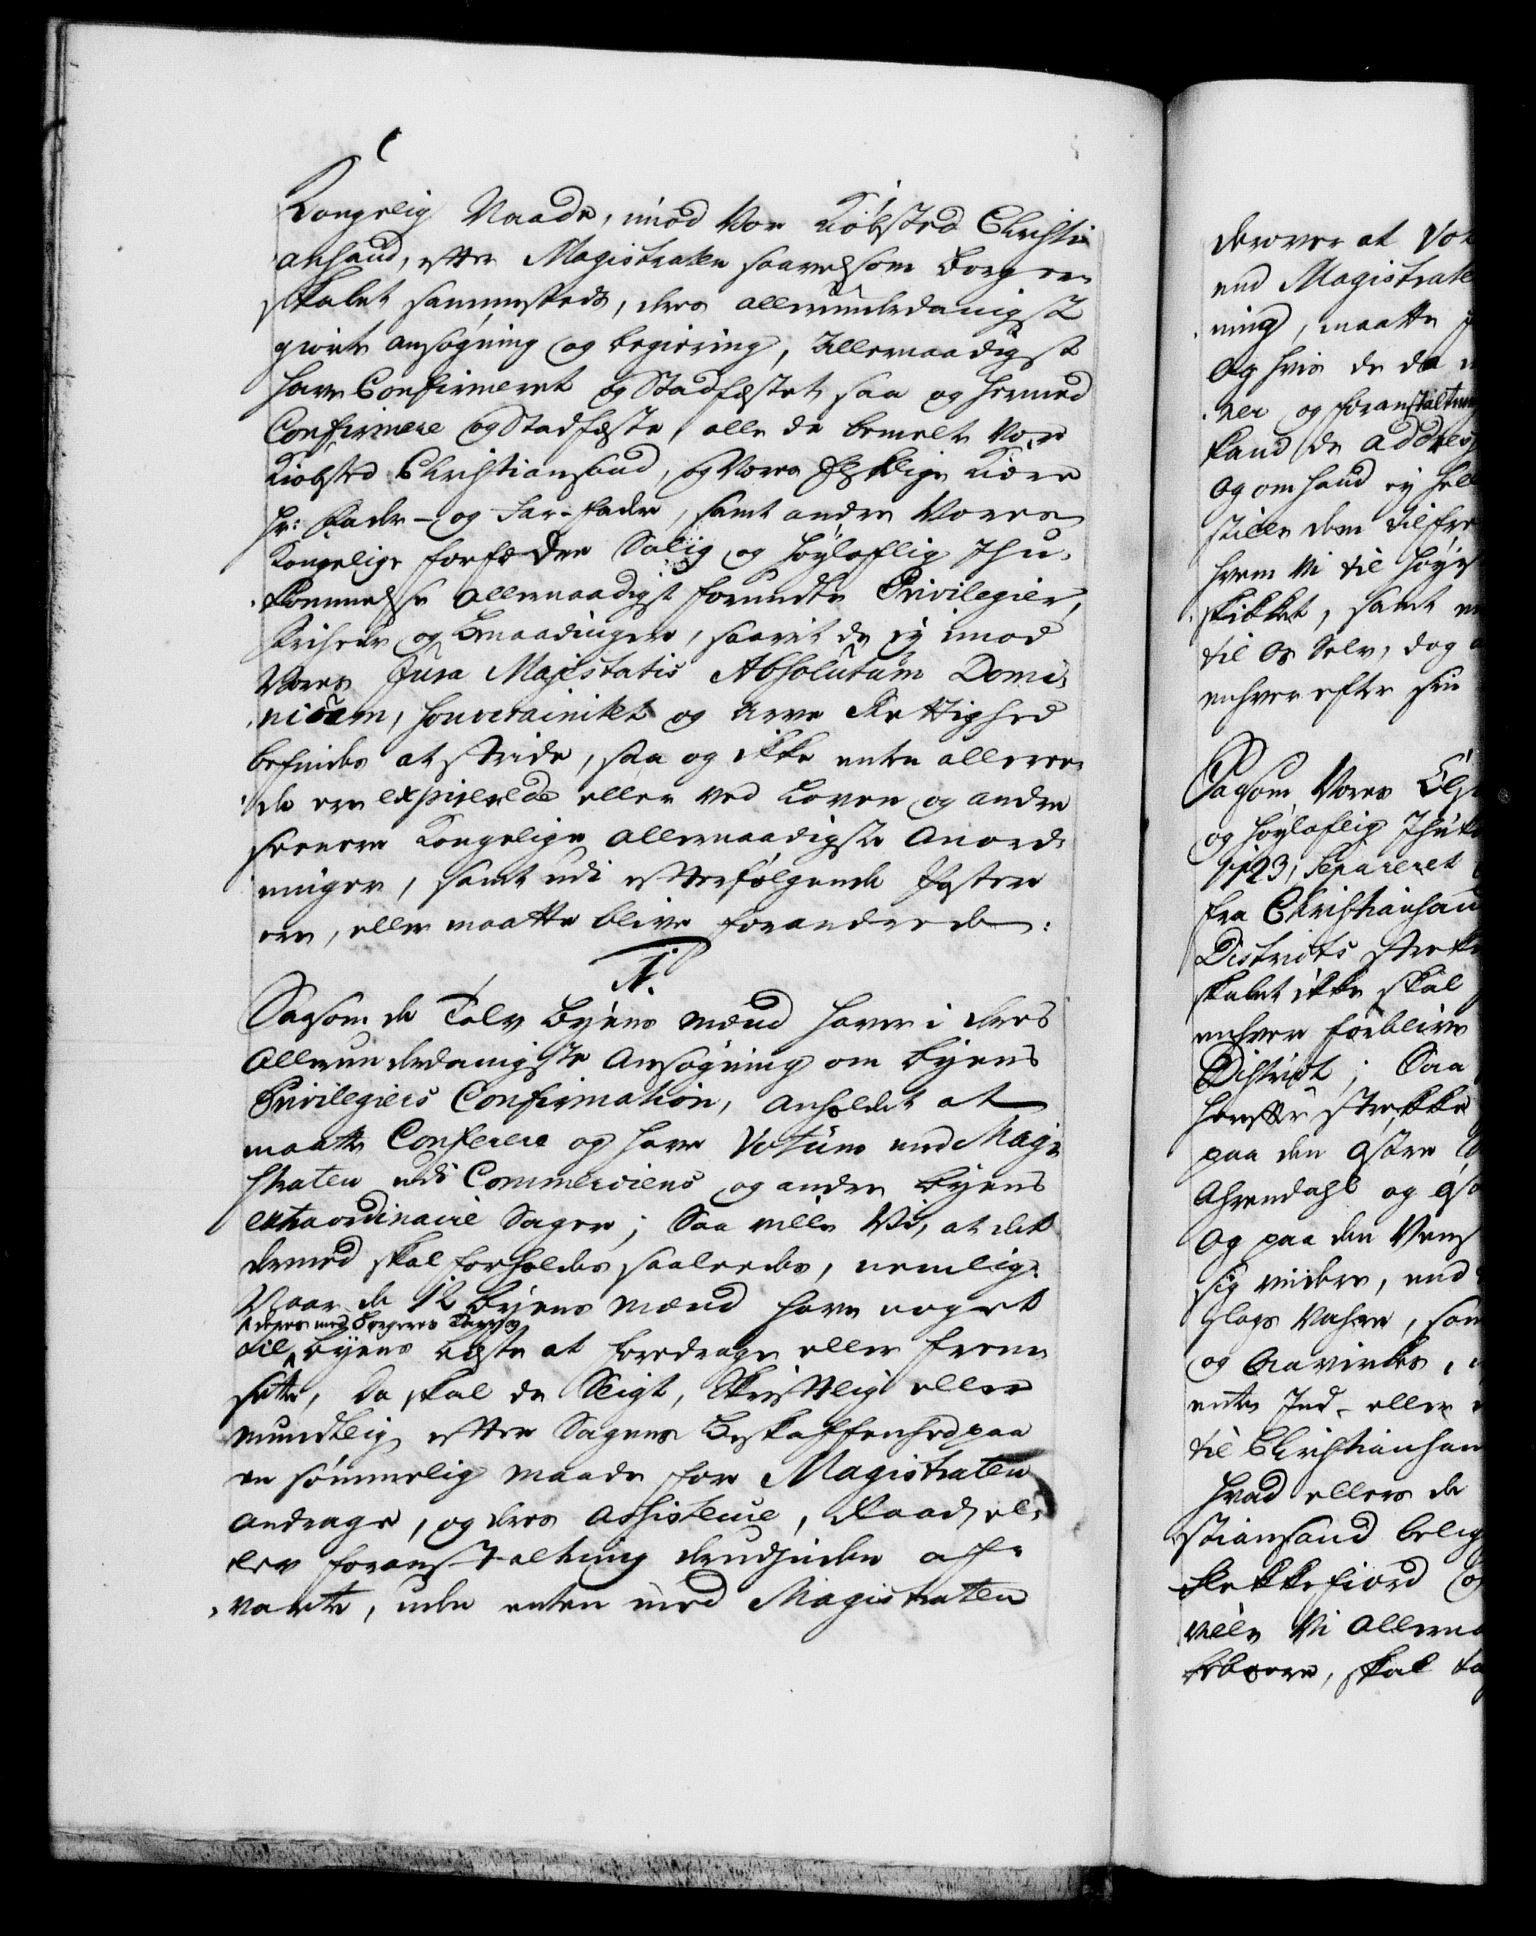 Kongelig Naade, imod Vor Kiøbsted Christi
ansand, efter Magistraten saavelsom Borger
skabet sammesteds, deres allerunderdanigst
giorte ansøgning og begiering, Allernaadigst
have Confirmeret og Stadfæstet saa og hermed
Confirmere og Stadfæste, alle de bemelte Vor
Kiøbsted Christiansand, og Vores Elskelige Kiere
Hr: Fader- og Far-Fader, samt andre Vores
Kongelige forfædre Salig og Høyloflig Ihu-
kommelse allernaadigst forundte Privilegier,
Friheder og Benaadinger, saavit de ey imod
Vores Jura Majestatis Absolutum Domi-
nium, Souverainitet og Arve Rettighed
befindes at stride, saa og ikke enten allere-
de ere expirerede eller ved Loven og andre
seenere Kongelige allernaadigste Anord-
ninger, samt udi efterfølgende Poster
ere, eller maatte blive forandrede:
1.
Saasom de Tolv Byens Mænd haver i deres
allerunderdanigste Ansøgning om Byens
Privilegiers Confirmation, anholdet at
maatte Conferere og have Votum med Magi-
straten udi Commerciens og andre Byens
extraordinaire Sager; Saa ville Vi, at det
dermed skal forholdes saaledes, nemlig:
Naar de 12 Byens Mænd have noget
deres med Borgeres Tarv og
til Byens Beste at foredrage eller frem
sette, da skal de Sligt, Skriftlig eller
mundtlig efter Sagens Beskaffenhed paa
en sømmelig Maade for Magistraten
andrage, og deres Assistence, Raad el-
ler foranstaltning derudjinden aff-
varte, uden enten med Magistraten
derover at Vo
end Magistrate
ning, maatte
Og hvis de da
ner og foranstaltnin
kand de addres
Og om hand ey hel
stille dem tilfre
hvem Vi til høye
skikket, samt
til Os Selv, dog
enhver efter sin
Saasom Vores Els
og høyloflig Ihuk
1723, Separeret
fra Christiansan
Districts strekk
skabet ikke skal
enhver forblive
District; Saa
herefter strekke
paa den østre
Ahrendahl og
Og paa den Vens
sig videre, end
slags Vahre, som
og Aavirkes,
enten Ind- eller
til Christiansan
hvad ellers de
stiansand belig
Flekkefiord og
ville Vi allerna
beboere, skal